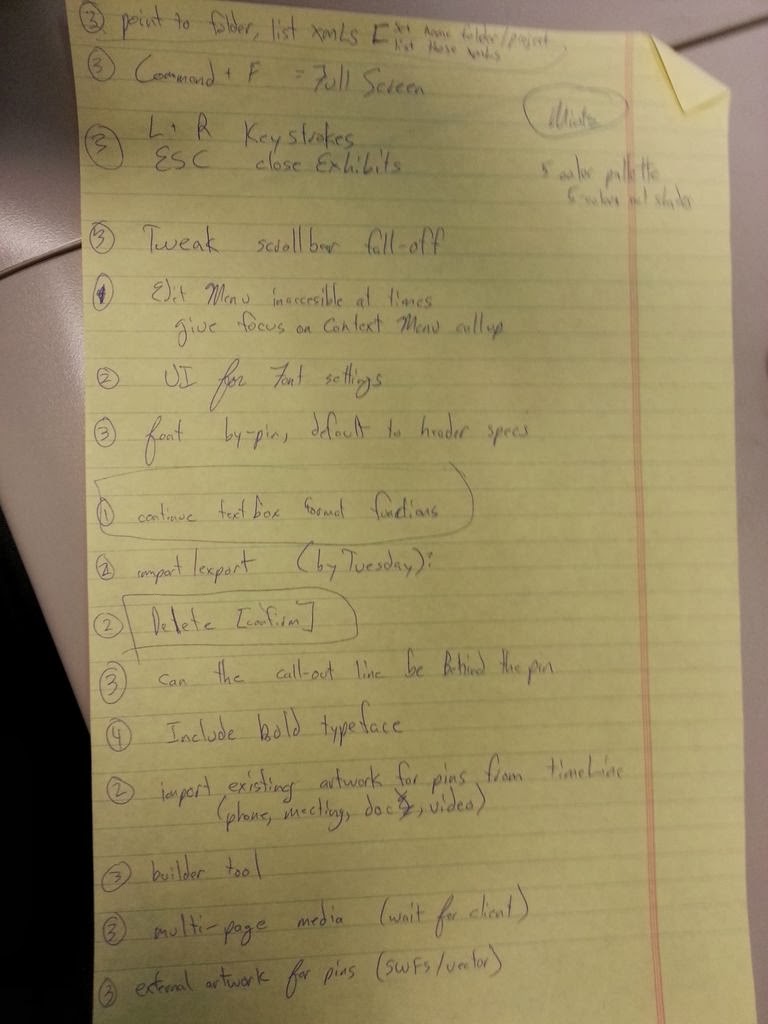 ③ point to folder, list xmls [ name folder/project
list those xmls
③ Command + F = Full Screen
③ L + R Keystrokes
ESC close Exhibits
5 color pallette
5 colors not shades
③ Tweak scrollbar fall-off
Edit Menu inaccesible at times
give focus on Context Menu callup
② UI for Font settings
③ font by-pin, default to header specs
① continue textbox format functions
② import/export (by Tuesday):
② Delete [confirm]
③ can the call-out line be Behind the pin
④ Include bold typeface
② import existing artwork for pins from timeline
(phone, meeting, doc, video)
③ builder tool
③ multi-page media (wait for client)
③ external artwork for pins (SWFs/vector)